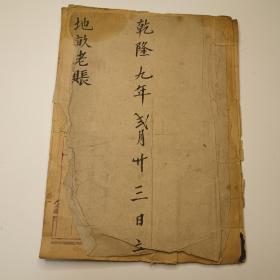 乾隆九年弍月廿三日立
地畝老賬